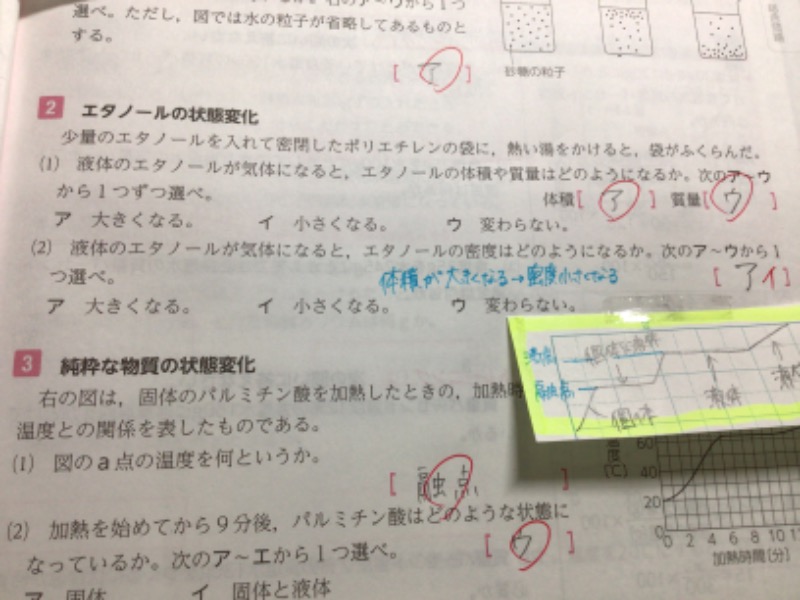 選べ。ただし，図では水の粒子が省略してあるものと
する。
[ ア ]
砂糖の粒子
2 エタノールの状態変化
少量のエタノールを入れて密閉したポリエチレンの袋に，熱い湯をかけると，袋がふくらんだ。
(1) 液体のエタノールが気体になると，エタノールの体積や質量はどのようになるか。次のア〜ウ
から1つずつ選べ。 体積[ ア ] 質量[ ウ ]
ア 大きくなる。 イ 小さくなる。 ウ 変わらない。
(2) 液体のエタノールが気体になると，エタノールの密度はどのようになるか。次のア〜ウから1
つ選べ。 体積が大きくなる→密度小さくなる [ アイ ]
ア 大きくなる。 イ 小さくなる。 ウ 変わらない。
3 純粋な物質の状態変化
右の図は，固体のパルミチン酸を加熱したときの，加熱時
温度との関係を表したものである。
(1) 図のa点の温度を何というか。
[ 融点 ]
(2) 加熱を始めてから9分後，パルミチン酸はどのような状態に
なっているか。次のア〜エから1つ選べ。 [ ウ ]
ア 固体 イ 固体と液体
融点
固体
液体
60
度
(℃)
20
0
0 2 4 6 8 10
加熱時間〔分〕